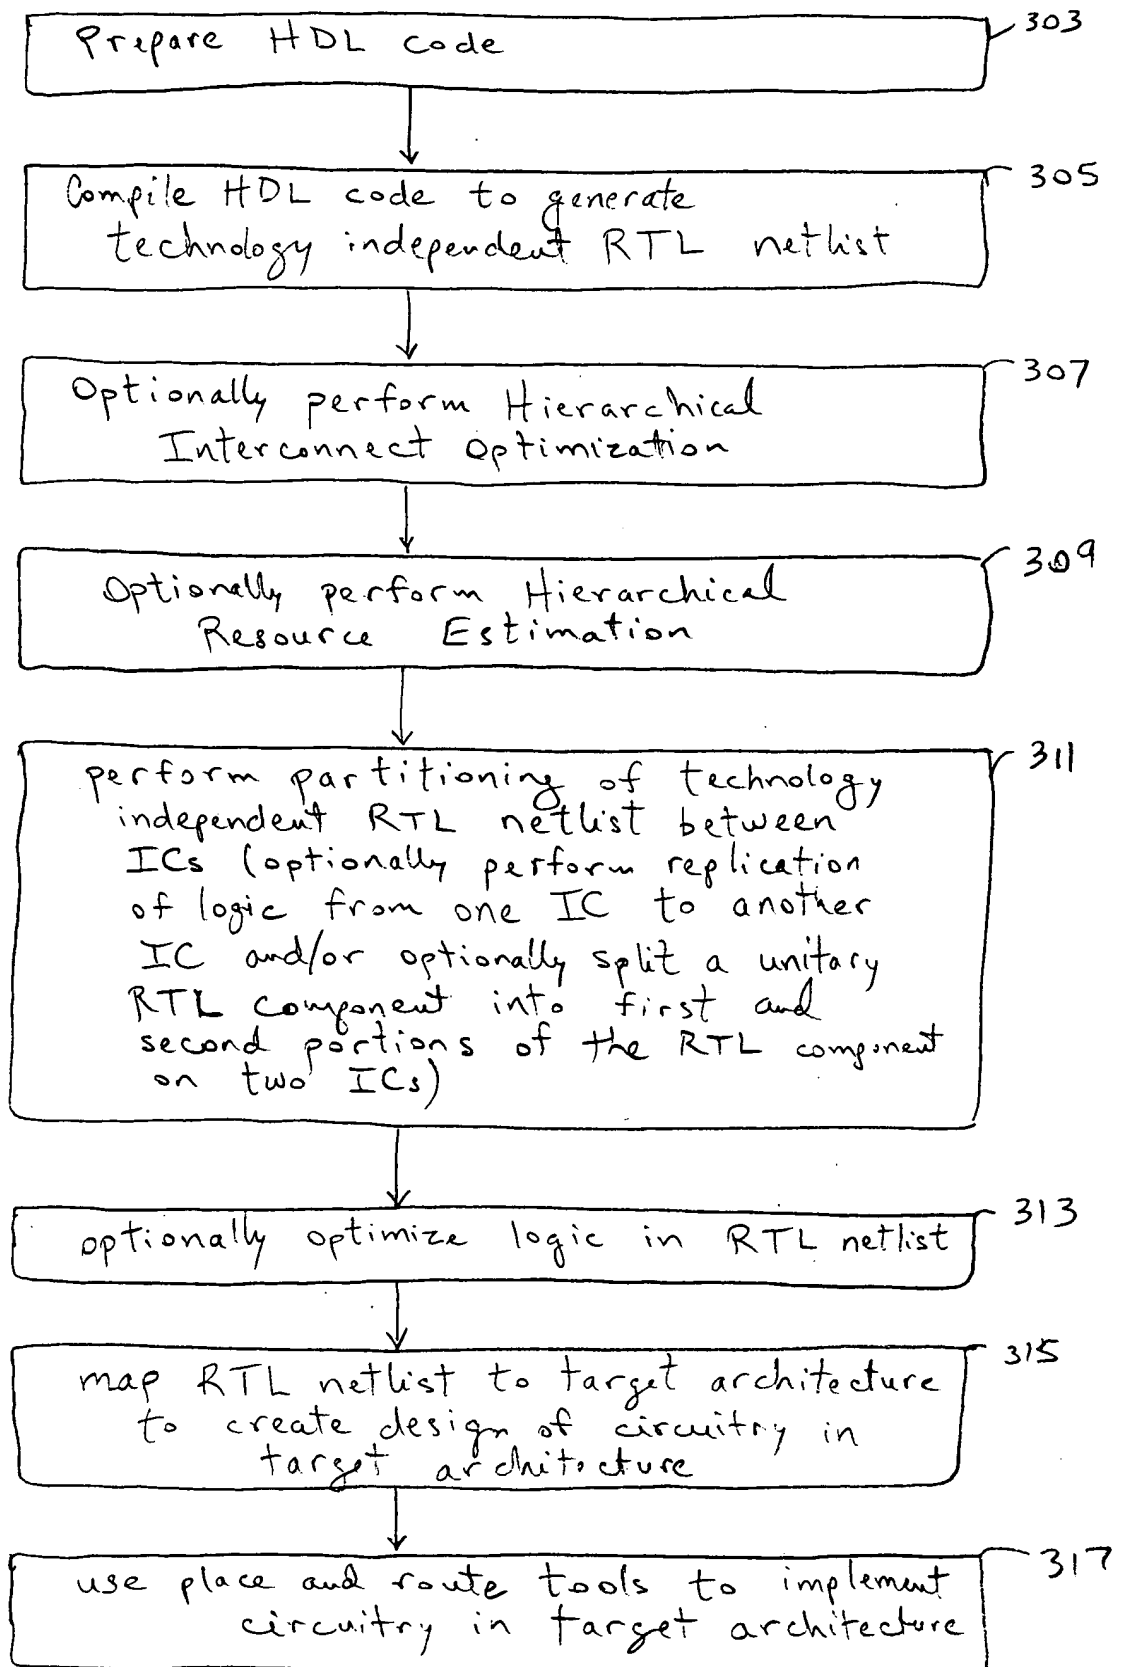 Prepare HDL code
303
Compile HDL code to generate
technology independent RTL netlist
305
Optionally perform Hierarchical
Interconnect Optimization
307
Optionally perform Hierarchical
Resource Estimation
309
perform partitioning of technology
independent RTL netlist between
ICs (optionally perform replication
of logic from one IC to another
IC and/or optionally split a unitary
RTL component into first and
second portions of the RTL component
on two ICs)
311
optionally optimize logic in RTL netlist
313
map RTL netlist to target architecture
to create design of circuitry in
target architecture
315
use place and route tools to implement
circuitry in target architecture
317